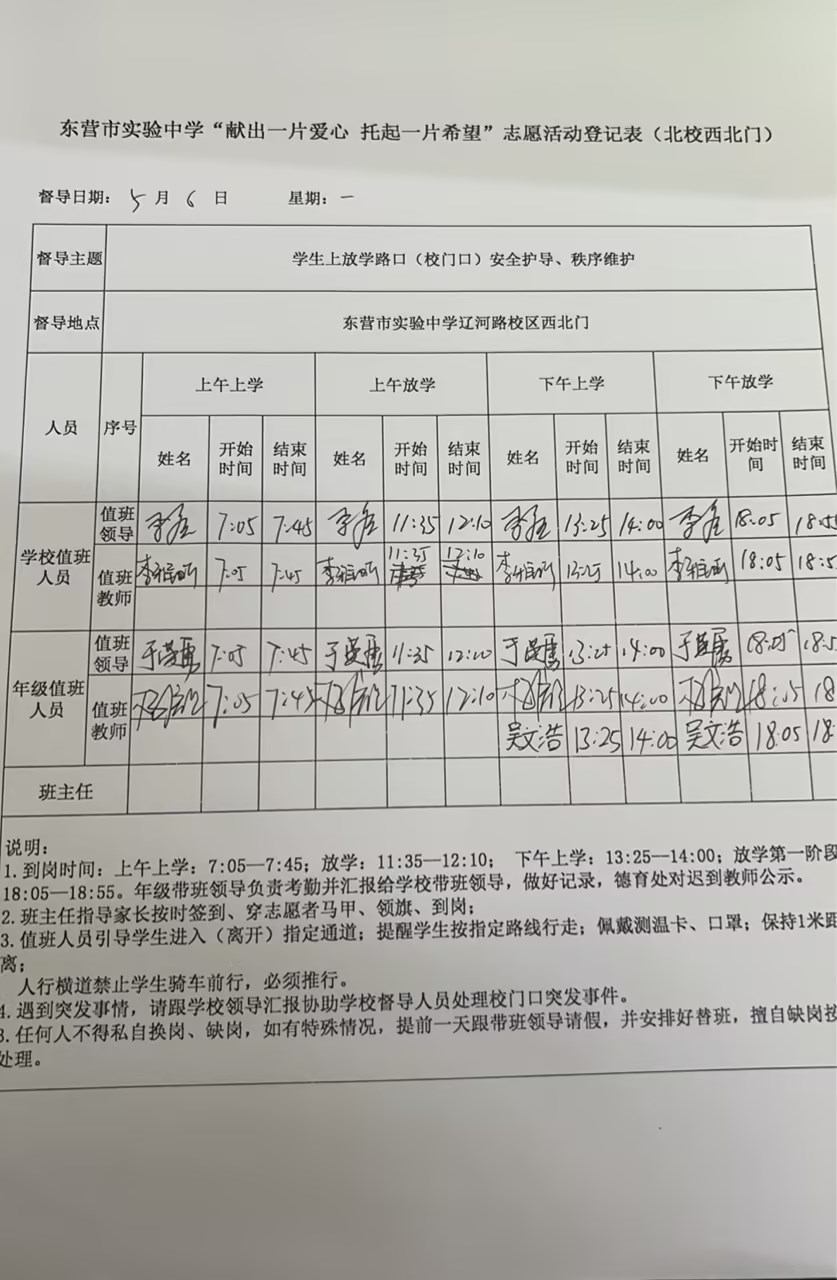 东营市实验中学“献出一片爱心 托起一片希望”志愿活动登记表（北校西北门）
督导日期: 5 月 6 日 星期: 一
督导主题 学生上放学路口（校门口）安全护导、秩序维护
督导地点 东营市实验中学辽河路校区西北门
人员 序号 上午上学 上午放学 下午上学 下午放学
姓名 开始时间 结束时间 姓名 开始时间 结束时间 姓名 开始时间 结束时间 姓名 开始时间 结束时间
学校值班人员 值班领导 7:05 7:45 11:35 12:10 13:25 14:00 18:05 18:55
值班教师 7:05 7:45 11:35 12:10 13:25 14:00 18:05 18:5
年级值班人员 值班领导 7:05 7:45 11:35 12:10 13:25 14:00 18:05 18:5
值班教师 7:05 7:45 11:35 12:10 13:25 14:00 18:05 18
吴文浩 13:25 14:00 吴文浩 18:05 18:
班主任
说明:
1.到岗时间: 上午上学: 7:05—7:45; 放学: 11:35—12:10; 下午上学: 13:25—14:00; 放学第一阶段
18:05—18:55。年级带班领导负责考勤并汇报给学校带班领导，做好记录，德育处对迟到教师公示。
2.班主任指导家长按时签到、穿志愿者马甲、领旗、到岗;
3.值班人员引导学生进入（离开）指定通道; 提醒学生按指定路线行走; 佩戴测温卡、口罩; 保持1米距
离;
人行横道禁止学生骑车前行，必须推行。
4.遇到突发事情，请跟学校领导汇报协助学校督导人员处理校门口突发事件。
3.任何人不得私自换岗、缺岗，如有特殊情况，提前一天跟带班领导请假，并安排好替班，擅自缺岗按
处理。